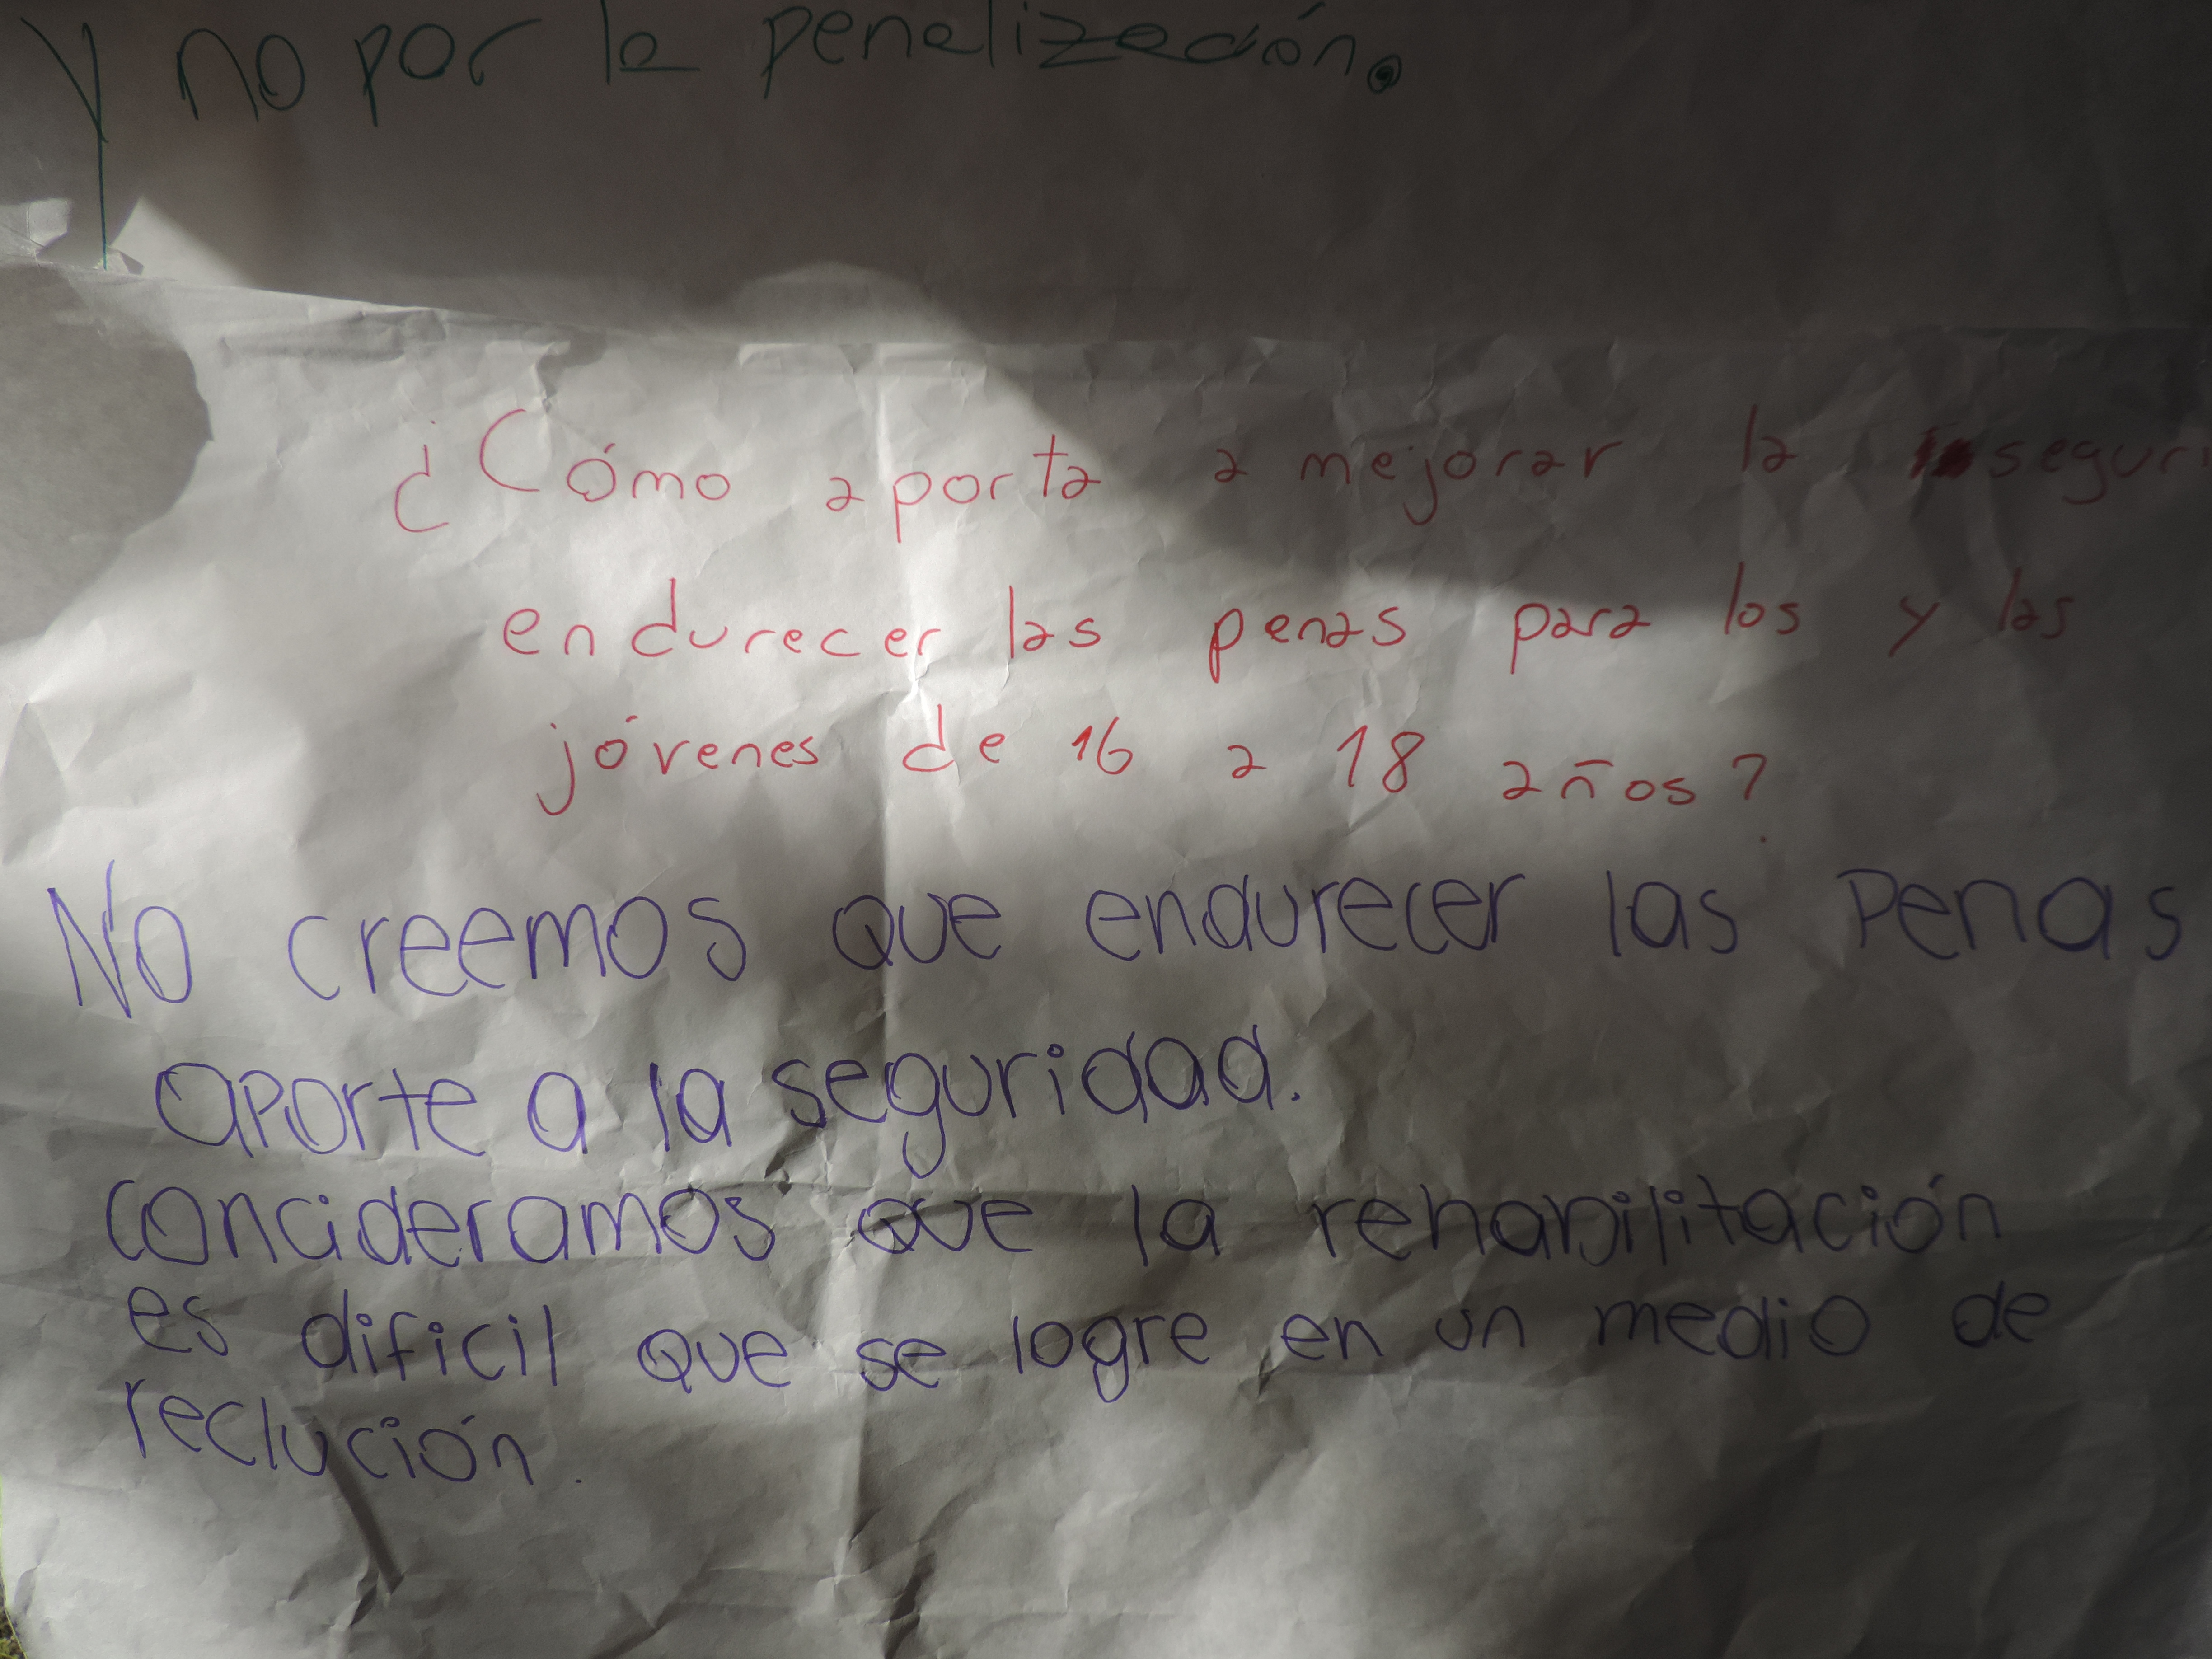 y no por la penalización.
¿Cómo aporta a mejorar la seguri
endurecer las penas para los y las
jóvenes de 16 a 18 años?
No creemos que endurecer las Penas
aporte a la seguridad.
concideramos que la rehabilitación
es dificil que se logre en un medio de
reclución.